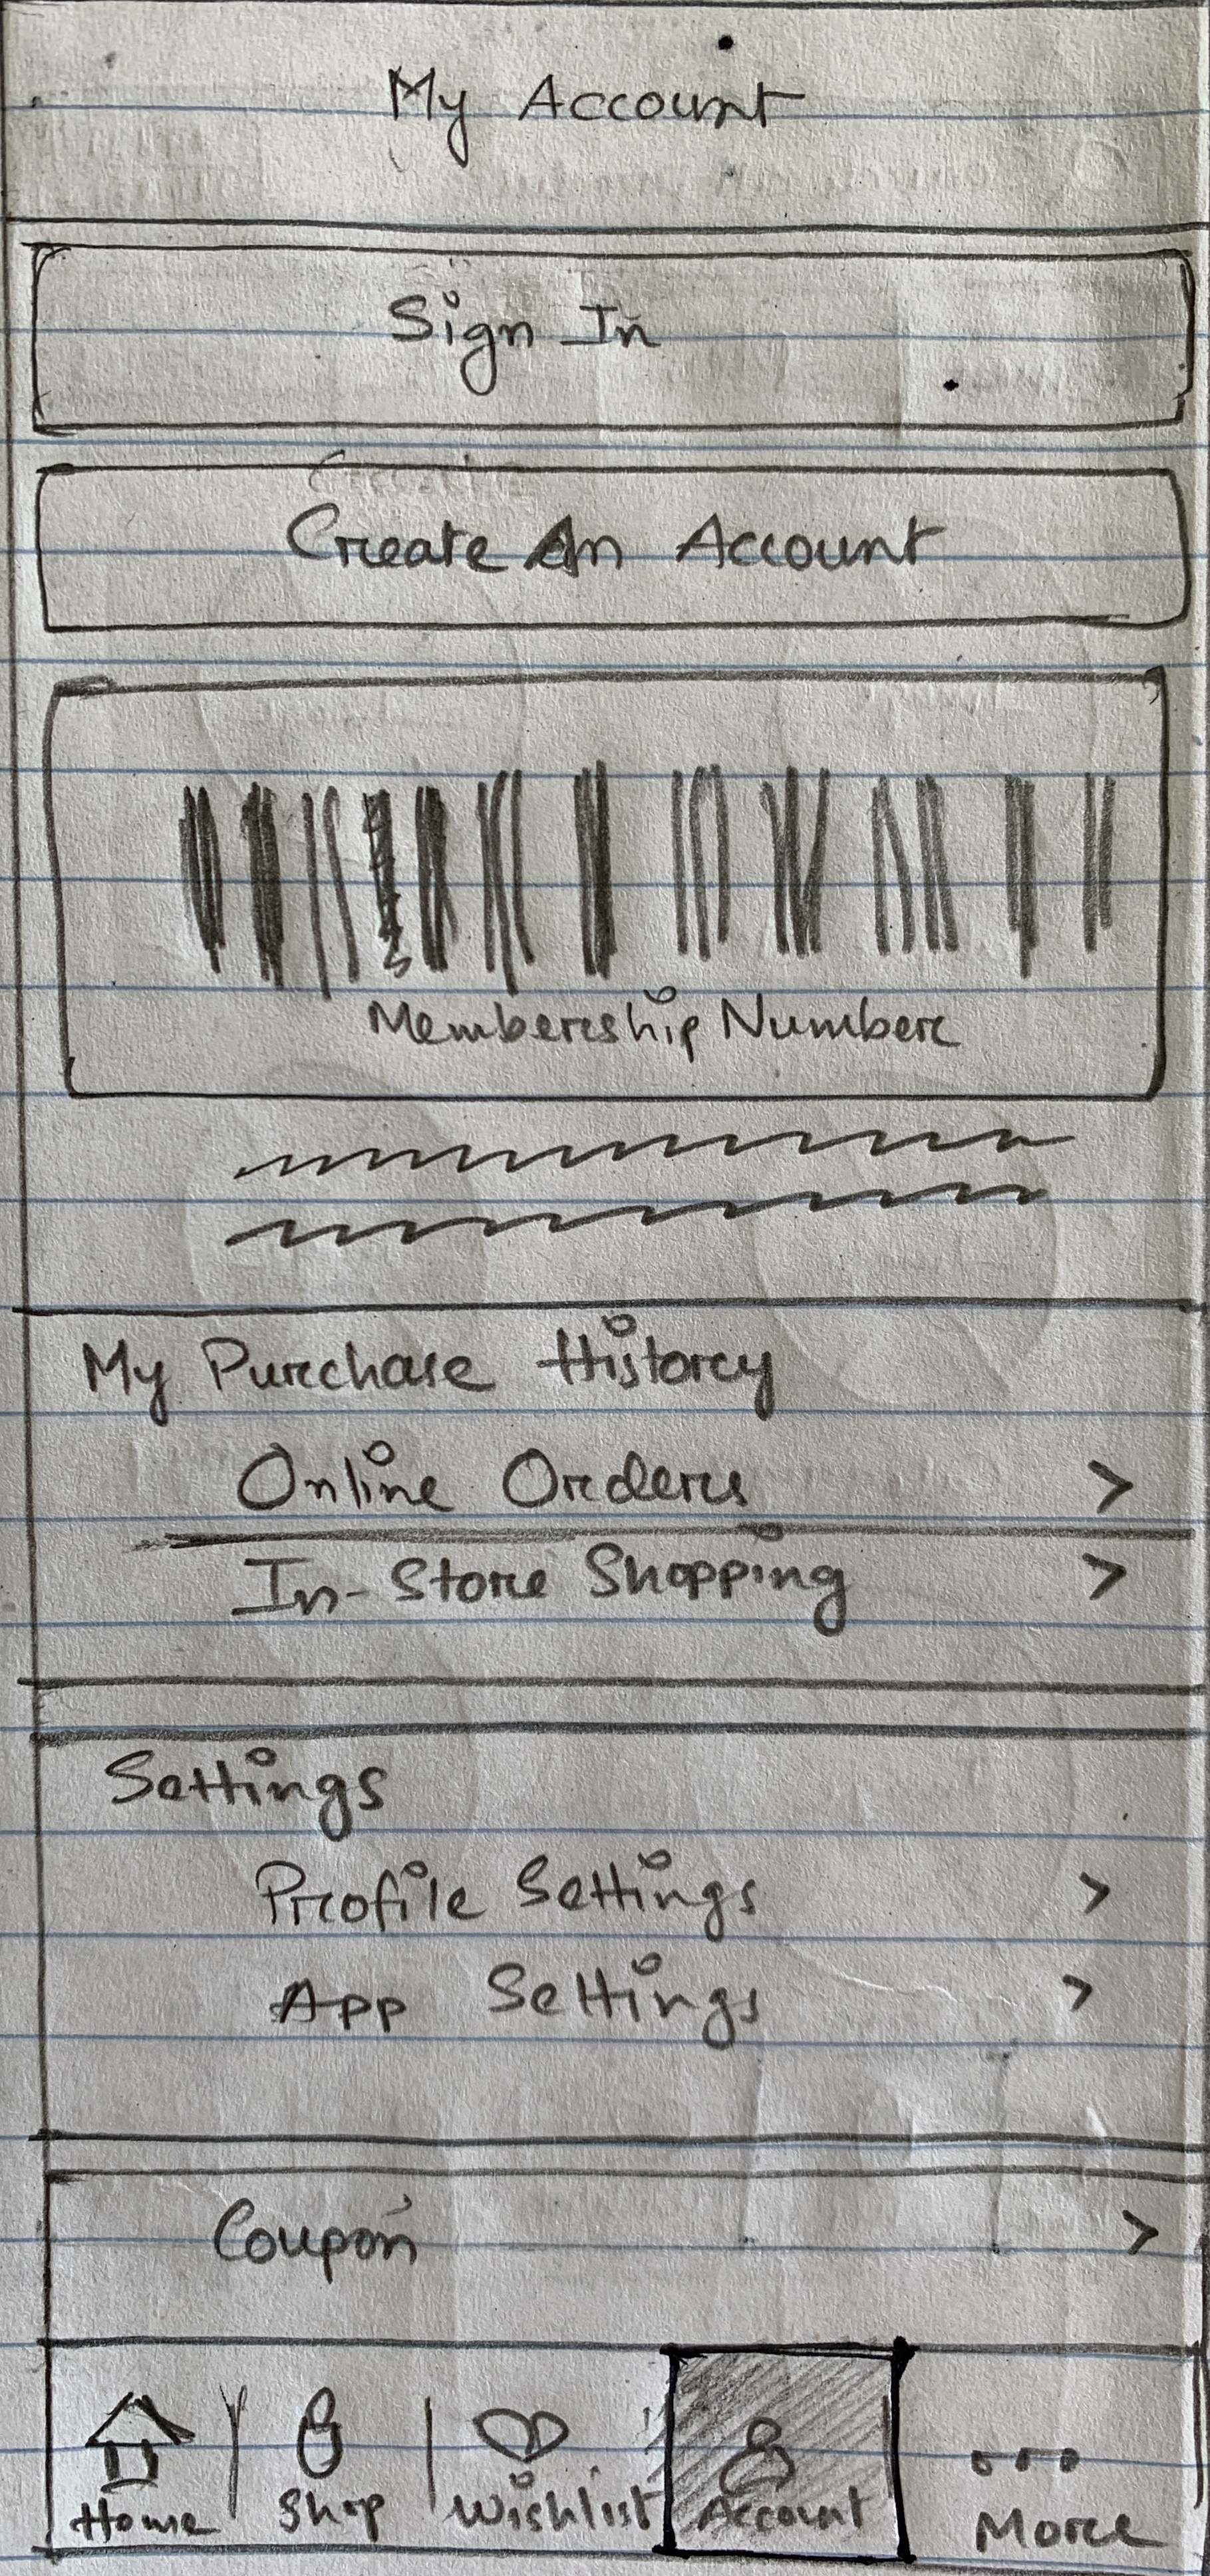 My Account
Sign In
Create An Account
Membership Number
My Purchase History
Online Orders >
In-Store Shopping >
Settings
Profile Settings >
App Settings >
Coupon >
Home Shop Wishlist Account More